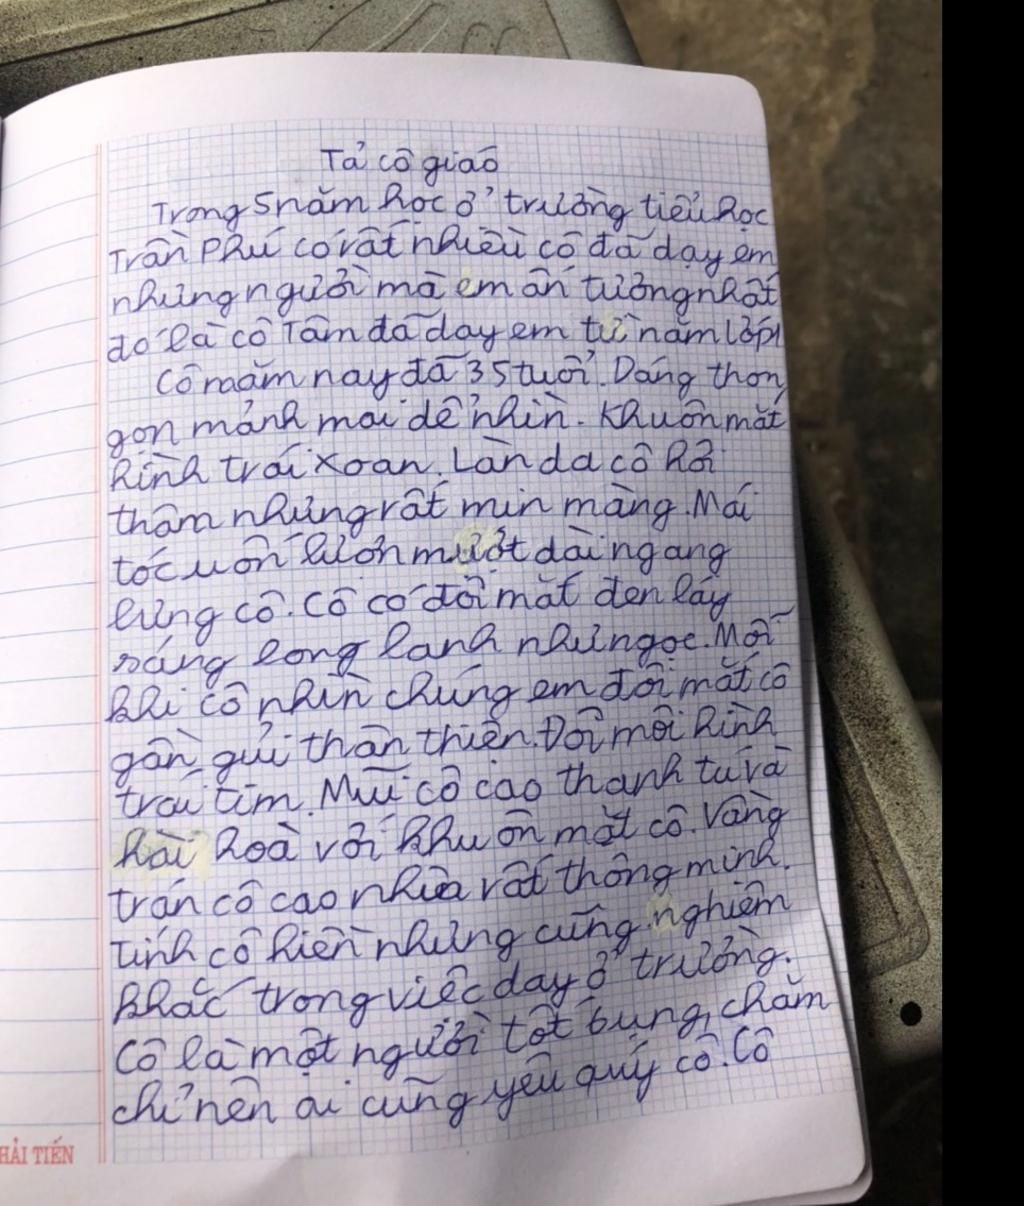 Tả cô giaó
Trong 5 năm học ở trường tiểu học
Trần Phú có rất nhiều cô đã dạy em
nhưng người mà em ấn tưởng nhất
đó là cô Tâm đã dạy em từ năm lớp 1
Cô năm nay đã 35 tuổi. Dáng thon
gọn mảnh mai dể nhìn. Khuôn mặt
hình trái xoan. Làn da cô hơi
thâm nhưng rất min màng. Mái
tóc uốn lượn mượt dài ngang
lưng cô. Cô có đôi mắt đen láy
sáng long lanh như ngọc. Mỗi
khi cô nhìn chúng em đôi mắt cô
gần gủi thân thiện. Đôi môi hình
trái tim. Mũi cô cao thanh tú và
hài hoà với khuôn mặt cô. Vầng
trán cô cao nhìn rất thông minh.
Tính cô hiền nhưng cũng nghiêm
khắc trong việc dạy ở trường.
Cô là một người tốt bụng, chăm
chỉ nên ai cũng yêu quý cô. Cô
HẢI TIẾN